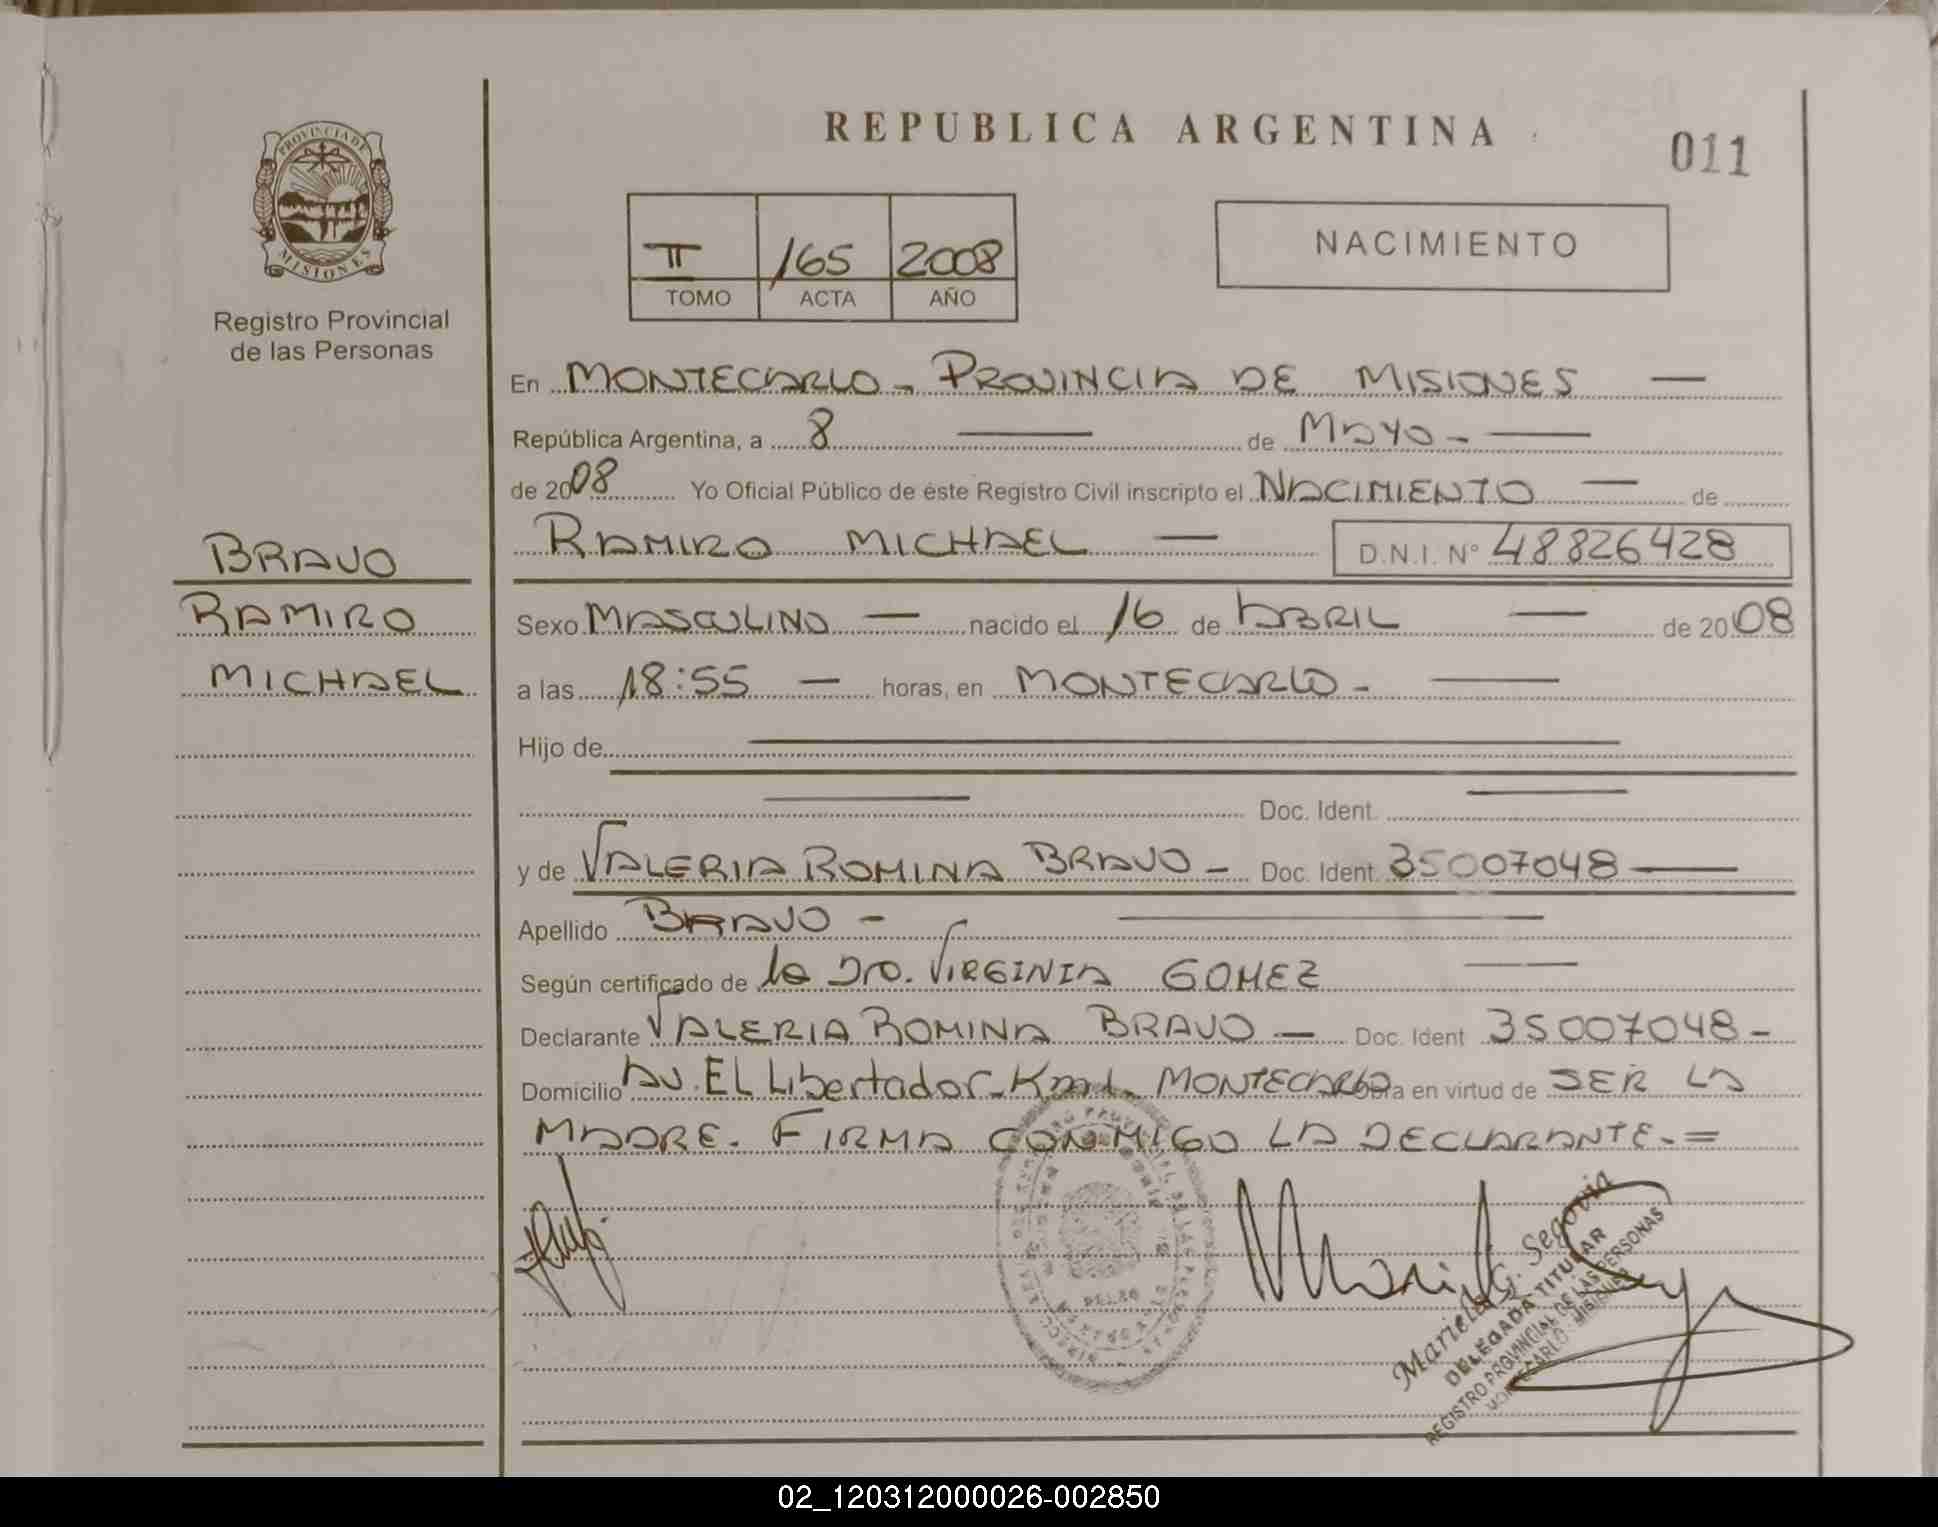 REPUBLICA ARGENTINA
011
PROVINCIA DE
MISIONES
Registro Provincial
de las Personas
II 165 2008
TOMO ACTA AÑO
NACIMIENTO
En MONTECARLO - PROVINCIA DE MISIONES —
República Argentina, a 8 — de MAYO - —
de 2008 Yo Oficial Público de éste Registro Civil inscripto el NACIMIENTO — de
RAMIRO MICHAEL — D.N.I. Nº 48826428
BRAVO
RAMIRO
MICHAEL
Sexo MASCULINO — nacido el 16 de ABRIL — de 2008
a las 18:55 — horas, en MONTECARLO - —
Hijo de —
— Doc. Ident. —
y de VALERIA ROMINA BRAVO - Doc. Ident. 35007048 —
Apellido BRAVO - —
Según certificado de la Dra. VIRGINIA GOMEZ —
Declarante VALERIA ROMINA BRAVO — Doc. Ident 35007048 -
Domicilio AV. EL Libertador - Km 1. MONTECARLO Obra en virtud de SER LA
MADRE. FIRMA CONMIGO LA DECLARANTE. =
Mariela G. Segovia
DELEGADA TITULAR
REGISTRO PROVINCIAL DE LAS PERSONAS
MONTECARLO - MISIONES
02_120312000026-002850